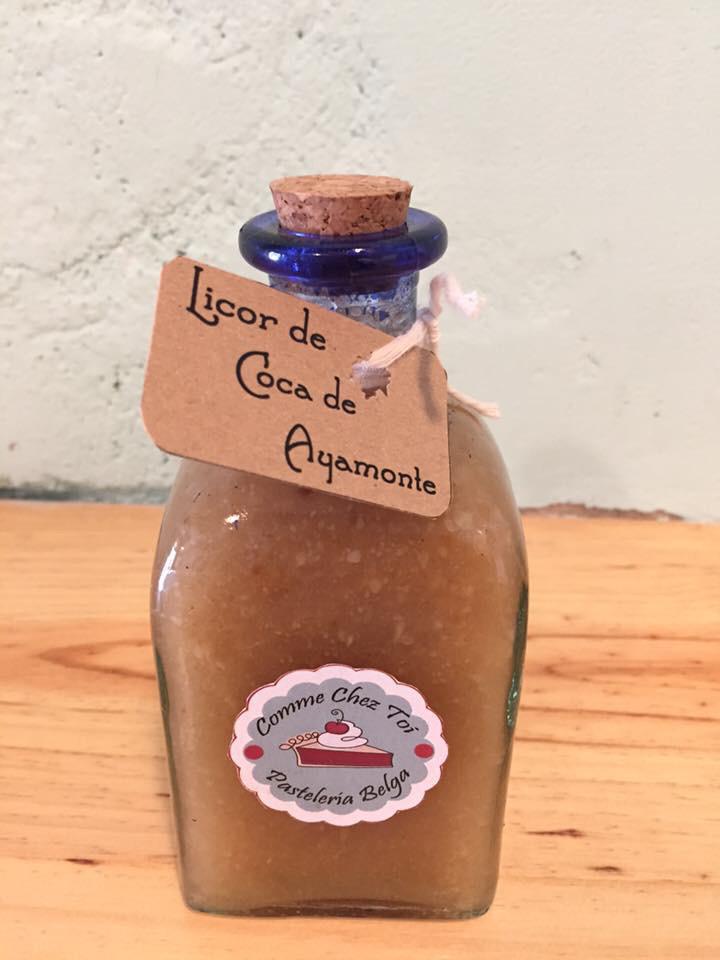 Licor de
Coca de
Ayamonte
Comme Chez Toi
Pastelería Belga